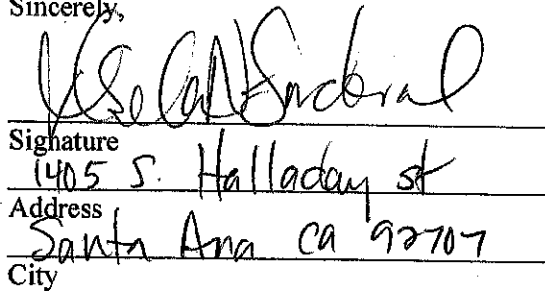 Sincerely,
Signature
1405 S. Halladay st
Address
Santa Ana ca 92707
City